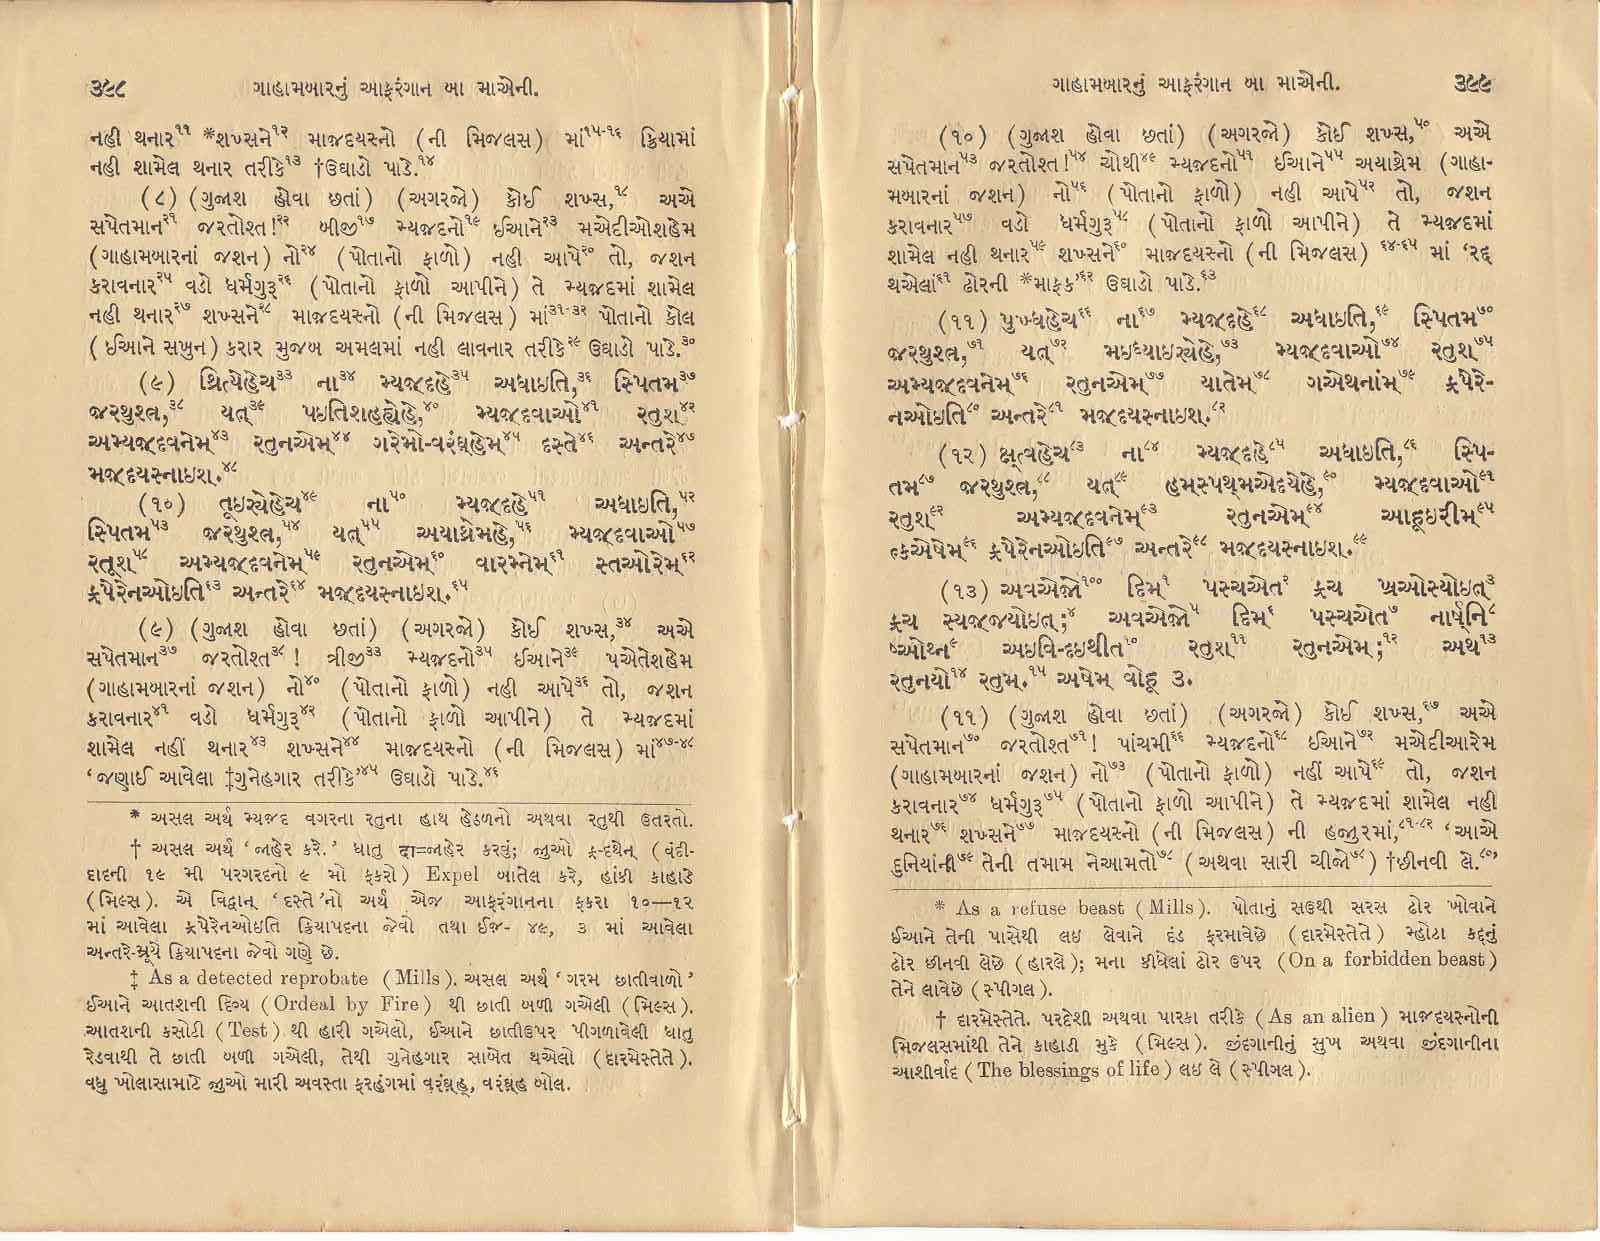 ૩૯૮ ગાહામબારનું આફરંગાન બા માએની.
નહી થનાર૧૧ *શખ્સને૧૨ માજદયસ્નો (ની મિજલસ) માં૧૫-૧૬ ક્રિયામાં
નહી શામેલ થનાર તરીકે૧૩ †ઉઘાડો પાડે.૧૪
(૮) (ગુજાશ હોવા છતાં) (અગરજો) કોઈ શખ્સ,૧૮ અએ
સપેતમાન૨૧ જરતોશ્ત!૨૨ બીજી૧૭ મ્યજદનો૧૯ ઈઆને૨૩ મએદીઓશહેમ
(ગાહામબારનાં જશન) નો૨૪ (પોતાનો ફાળો) નહી આપે૨૦ તો, જશન
કરાવનાર૨૫ વડો ધર્મગુરૂ૨૬ (પોતાનો ફાળો આપીને) તે મ્યજદમાં શામેલ
નહી થનાર૨૭ શખ્સને૨૮ માજદયસ્નો (ની મિજલસ) માં૩૧-૩૨ પોતાનો કોલ
(ઈઆને સખુન) કરાર મુજબ અમલમાં નહી લાવનાર તરીકે૨૯ ઉઘાડો પાડે.૩૦
(૯) થ્રિત્યેહેચ૩૩ ના૩૪ મ્યજ્દહે૩૫ અધાઇતિ,૩૬ સ્પિતમ૩૭
જરથુશ્ત્ર,૩૮ યત્૩૯ પઇતિશહહ્યેહે,૪૦ મ્યજ્દવાઓ૪૧ રતુશ્૪૨
અમ્યજ્દવનેમ્૪૩ રતુનએમ્૪૪ ગરેમો-વરંઘ્હેમ્૪૫ દસ્તે૪૬ અન્તરે૪૭
મજ્દયસ્નાઇશ.૪૮
(૧૦) તૂઇર્યેહેચ૪૯ ના૫૦ મ્યજ્દહે૫૧ અધાઇતિ,૫૨
સ્પિતમ૫૩ જરથુશ્ત્ર,૫૪ યત્૫૫ અયાથ્રેમહે,૫૬ મ્યજ્દવાઓ૫૭
રતૂશ્૫૮ અમ્યજ્દવનેમ્૫૯ રતુનએમ્૬૦ વારમ્નેમ્૬૧ સ્તઓરેમ્૬૨
ફ્રપેરેનઓઇતિ૬૩ અન્તરે૬૪ મજ્દયસ્નાઇશ.૬૫
(૯) (ગુજાશ હોવા છતાં) (અગરજો) કોઈ શખ્સ,૩૪ અએ
સપેતમાન૩૭ જરતોશ્ત૩૮! ત્રીજી૩૩ મ્યજદનો૩૫ ઈઆને૩૯ પએતેશહેમ
(ગાહામબારનાં જશન) નો૪૦ (પોતાનો ફાળો) નહી આપે૩૬ તો, જશન
કરાવનાર૪૧ વડો ધર્મગુરૂ૪૨ (પોતાનો ફાળો આપીને) તે મ્યજદમાં
શામેલ નહીં થનાર૪૩ શખ્સને૪૪ માજદયસ્નો (ની મિજલસ) માં૪૭-૪૮
‘જણાઈ આવેલા ‡ગુનેહગાર તરીકે’૪૫ ઉઘાડો પાડે.૪૬
* અસલ અર્થ મ્યજદ વગરના રતુના હાથ હેઠળનો અથવા રતુથી ઉતરતો.
† અસલ અર્થ ‘જાહેર કરે.’ ધાતુ दा=જાહેર કરવું; જુઓ ફ્ર-દથેન્ (વંદી-
દાદની ૧૯ મી પરગરદનો ૯ મો ફકરો) Expel બાતેલ કરે, હાંકી કાહાડે
(મિલ્સ). એ વિદ્વાન્ ‘દસ્તે’નો અર્થ એજ આફરંગાનના ફકરા ૧૦—૧૨
માં આવેલા ફ્રપેરેનઓઇતિ ક્રિયાપદના જેવો તથા ઈજ- ૪૯, ૩ માં આવેલા
અન્તરે-મ્રૂયે ક્રિયાપદના જેવો ગણે છે.
‡ As a detected reprobate (Mills). અસલ અર્થ ‘ગરમ છાતીવાળો’
ઈઆને આતશની દિગ્ય (Ordeal by Fire) થી છાતી બળી ગએલી (મિલ્સ).
આતશની કસોટી (Test) થી હારી ગએલો, ઈઆને છાતીઉપર પીગળાવેલી ધાતુ
રેડવાથી તે છાતી બળી ગએલી, તેથી ગુનેહગાર સાબેત થએલો (દારમેસ્તેતે).
વધુ ખોલાસામાટે જુઓ મારી અવસ્તા ફરહંગમાં વરંઘ્હ, વરંઘ્હ બોલ.
ગાહામબારનું આફરંગાન બા માએની. ૩૯૯
(૧૦) (ગુજાશ હોવા છતાં) (અગરજો) કોઈ શખ્સ,૫૦ અએ
સપેતમાન૫૩ જરતોશ્ત!૫૪ ચોથી૪૯ મ્યજદનો૫૧ ઈઆને૫૫ અયાથ્રેમ (ગાહા-
મબારનાં જશન) નો૫૬ (પોતાનો ફાળો) નહી આપે૫૨ તો, જશન
કરાવનાર૫૭ વડો ધર્મગુરૂ૫૮ (પોતાનો ફાળો આપીને) તે મ્યજદમાં
શામેલ નહી થનાર૫૯ શખ્સને૬૦ માજદયસ્નો (ની મિજલસ)૬૪-૬૫ માં ‘રદ્દ
થએલાં૬૧ ઢોરની *માફક’૬૨ ઉઘાડો પાડે.૬૩
(૧૧) પુખ્ધહેચ૬૬ ના૬૭ મ્યજ્દહે૬૮ અધાઇતિ,૬૯ સ્પિતમ૭૦
જરથુશ્ત્ર,૭૧ યત્૭૨ મઇધ્યાઇર્યેહે,૭૩ મ્યજ્દવાઓ૭૪ રતુશ્૭૫
અમ્યજ્દવનેમ્૭૬ રતુનએમ્૭૭ યાતેમ્૭૮ ગએથનાંમ્૭૯ ફ્રપેરે-
નઓઇતિ૮૦ અન્તરે૮૧ મજ્દયસ્નાઇશ.૮૨
(૧૨) ક્ષ્ત્વહેચ૮૩ ના૮૪ મ્યજ્દહે૮૫ અધાઇતિ,૮૬ સ્પિ-
તમ૮૭ જરથુશ્ત્ર,૮૮ યત્૮૯ હમસ્પથ્મએદયેહે,૯૦ મ્યજ્દવાઓ૯૧
રતુશ્૯૨ અમ્યજ્દવનેમ્૯૩ રતુનએમ્૯૪ આહૂઇરીમ્૯૫
ત્કએષેમ્૯૬ ફ્રપેરેનઓઇતિ૯૭ અન્તરે૯૮ મજ્દયસ્નાઇશ.૯૯
(૧૩) અવએજો૧૦૦ દિમ્૧ પસ્ચએત૨ ફ્રચ ખ્રઓસ્યોઇત્૩
ફ્રચ સ્યજ્જયોઇત્;૪ અવએજો૫ દિમ્૬ પસ્ચએત૭ નાર્ષ્નિ૮
ષ્યઓથ્ન૯ અઇવિ-દઇથીત૧૦ રતુશ૧૧ રતુનએમ્;૧૨ અથ૧૩
રતુનયો૧૪ રતુમ્.૧૫ અષેમ્ વોહૂ ૩.
(૧૧) (ગુજાશ હોવા છતાં) (અગરજો) કોઈ શખ્સ,૬૭ અએ
સપેતમાન૭૦ જરતોશ્ત૭૧! પાંચમી૬૬ મ્યજદનો૬૮ ઈઆને૭૨ મએદીઆરેમ
(ગાહામબારનાં જશન) નો૭૩ (પોતાનો ફાળો) નહીં આપે૬૯ તો, જશન
કરાવનાર૭૪ ધર્મગુરૂ૭૫ (પોતાનો ફાળો આપીને) તે મ્યજદમાં શામેલ નહી
થનાર૭૬ શખ્સને૭૭ માજદયસ્નો (ની મિજલસ) ની હજુરમાં,૮૧-૮૨ ‘આએ
દુનિયાંની૭૯ તેની તમામ નેઆમતો૭૮ (અથવા સારી ચીજો૭૮) †છીનવી લે.૮૦’
* As a refuse beast (Mills). પોતાનું સઉથી સરસ ઢોર ખોવાને
ઈઆને તેની પાસેથી લઇ લેવાને દંડ ફરમાવેછે (દારમેસ્તેતે) મ્હોટા કદ્દનું
ઢોર છીનવી લેછે (હારલે); મના કીધેલાં ઢોર ઉપર (On a forbidden beast)
તેને લાવેછે (સ્પીગલ).
† દારમેસ્તેતે. પરદેશી અથવા પારકા તરીકે (As an alien) માજદયસ્નોની
મિજલસમાંથી તેને કાહાડી મુકે (મિલ્સ). જીંદગાનીનું સુખ અથવા જીંદગાનીના
આશીર્વાદ (The blessings of life) લઇ લે (સ્પીગલ).